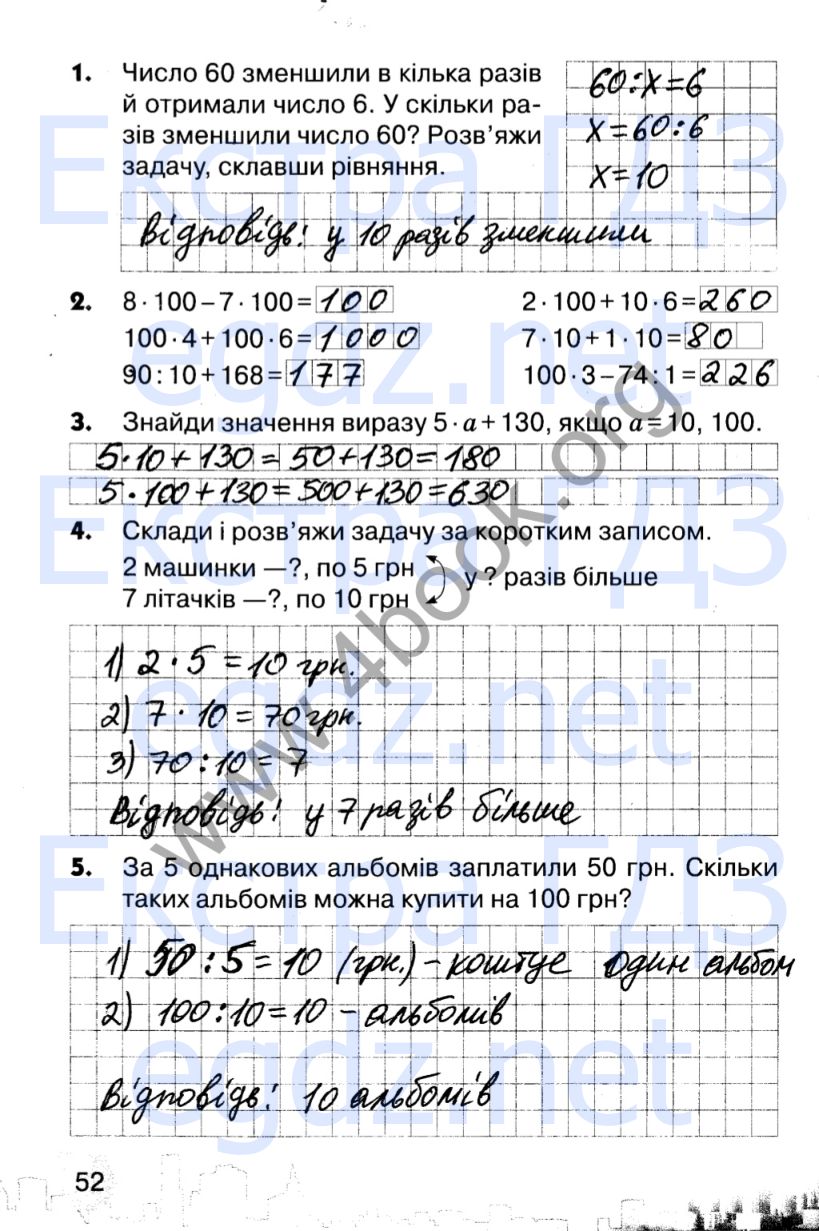 1. Число 60 зменшили в кілька разів
й отримали число 6. У скільки ра-
зів зменшили число 60? Розв'яжи
задачу, склавши рівняння.
60:х=6
х=60:6
х=10
Відповідь: у 10 разів зменшили
2. 8·100–7·100=100 2·100+10·6=260
100·4+100·6=1000 7·10+1·10=80
90:10+168=177 100·3–74:1=226
3. Знайди значення виразу 5·a+130, якщо a=10, 100.
5·10+130=50+130=180
5·100+130=500+130=630
4. Склади і розв'яжи задачу за коротким записом.
2 машинки —?, по 5 грн
у ? разів більше
7 літачків —?, по 10 грн
1) 2·5=10 грн.
2) 7·10=70 грн.
3) 70:10=7
Відповідь: у 7 разів більше
5. За 5 однакових альбомів заплатили 50 грн. Скільки
таких альбомів можна купити на 100 грн?
1) 50:5=10 (грн.) – коштує один альбом
2) 100:10=10 – альбомів
Відповідь: 10 альбомів
52
Екстра ГДЗ
egdz.net
Екстра ГДЗ
egdz.net
Екстра ГДЗ
egdz.net
www.4book.org